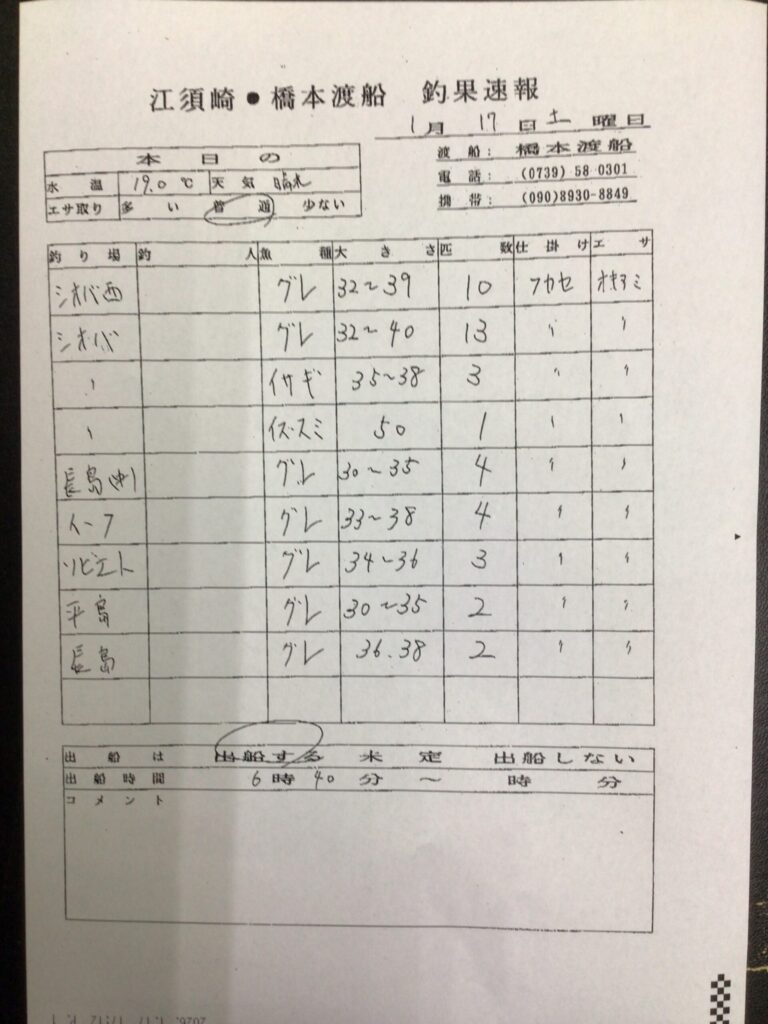 江須崎●橋本渡船 釣果速報
1月 17日 土 曜日
渡船: 橋本渡船
電話: (0739) 58-0301
携帯: (090)8930-8849
本日の
水温 19.0℃ 天気 晴
エサ取り 多い 普通 少ない
釣り場 釣人 魚種 大きさ 匹数 仕掛け エサ
シオバ西 グレ 32〜39 10 フカセ オキアミ
シオバ グレ 32〜40 13 〃 〃
〃 イサギ 35〜38 3 〃 〃
〃 イズスミ 50 1 〃 〃
長島(中) グレ 30〜35 4 〃 〃
イーフ グレ 33〜38 4 〃 〃
ソビエト グレ 34〜36 3 〃 〃
平島 グレ 30〜35 2 〃 〃
長島 グレ 36.38 2 〃 〃
出船は 出船する 未定 出船しない
出船時間 6時40分 〜 時 分
コメント